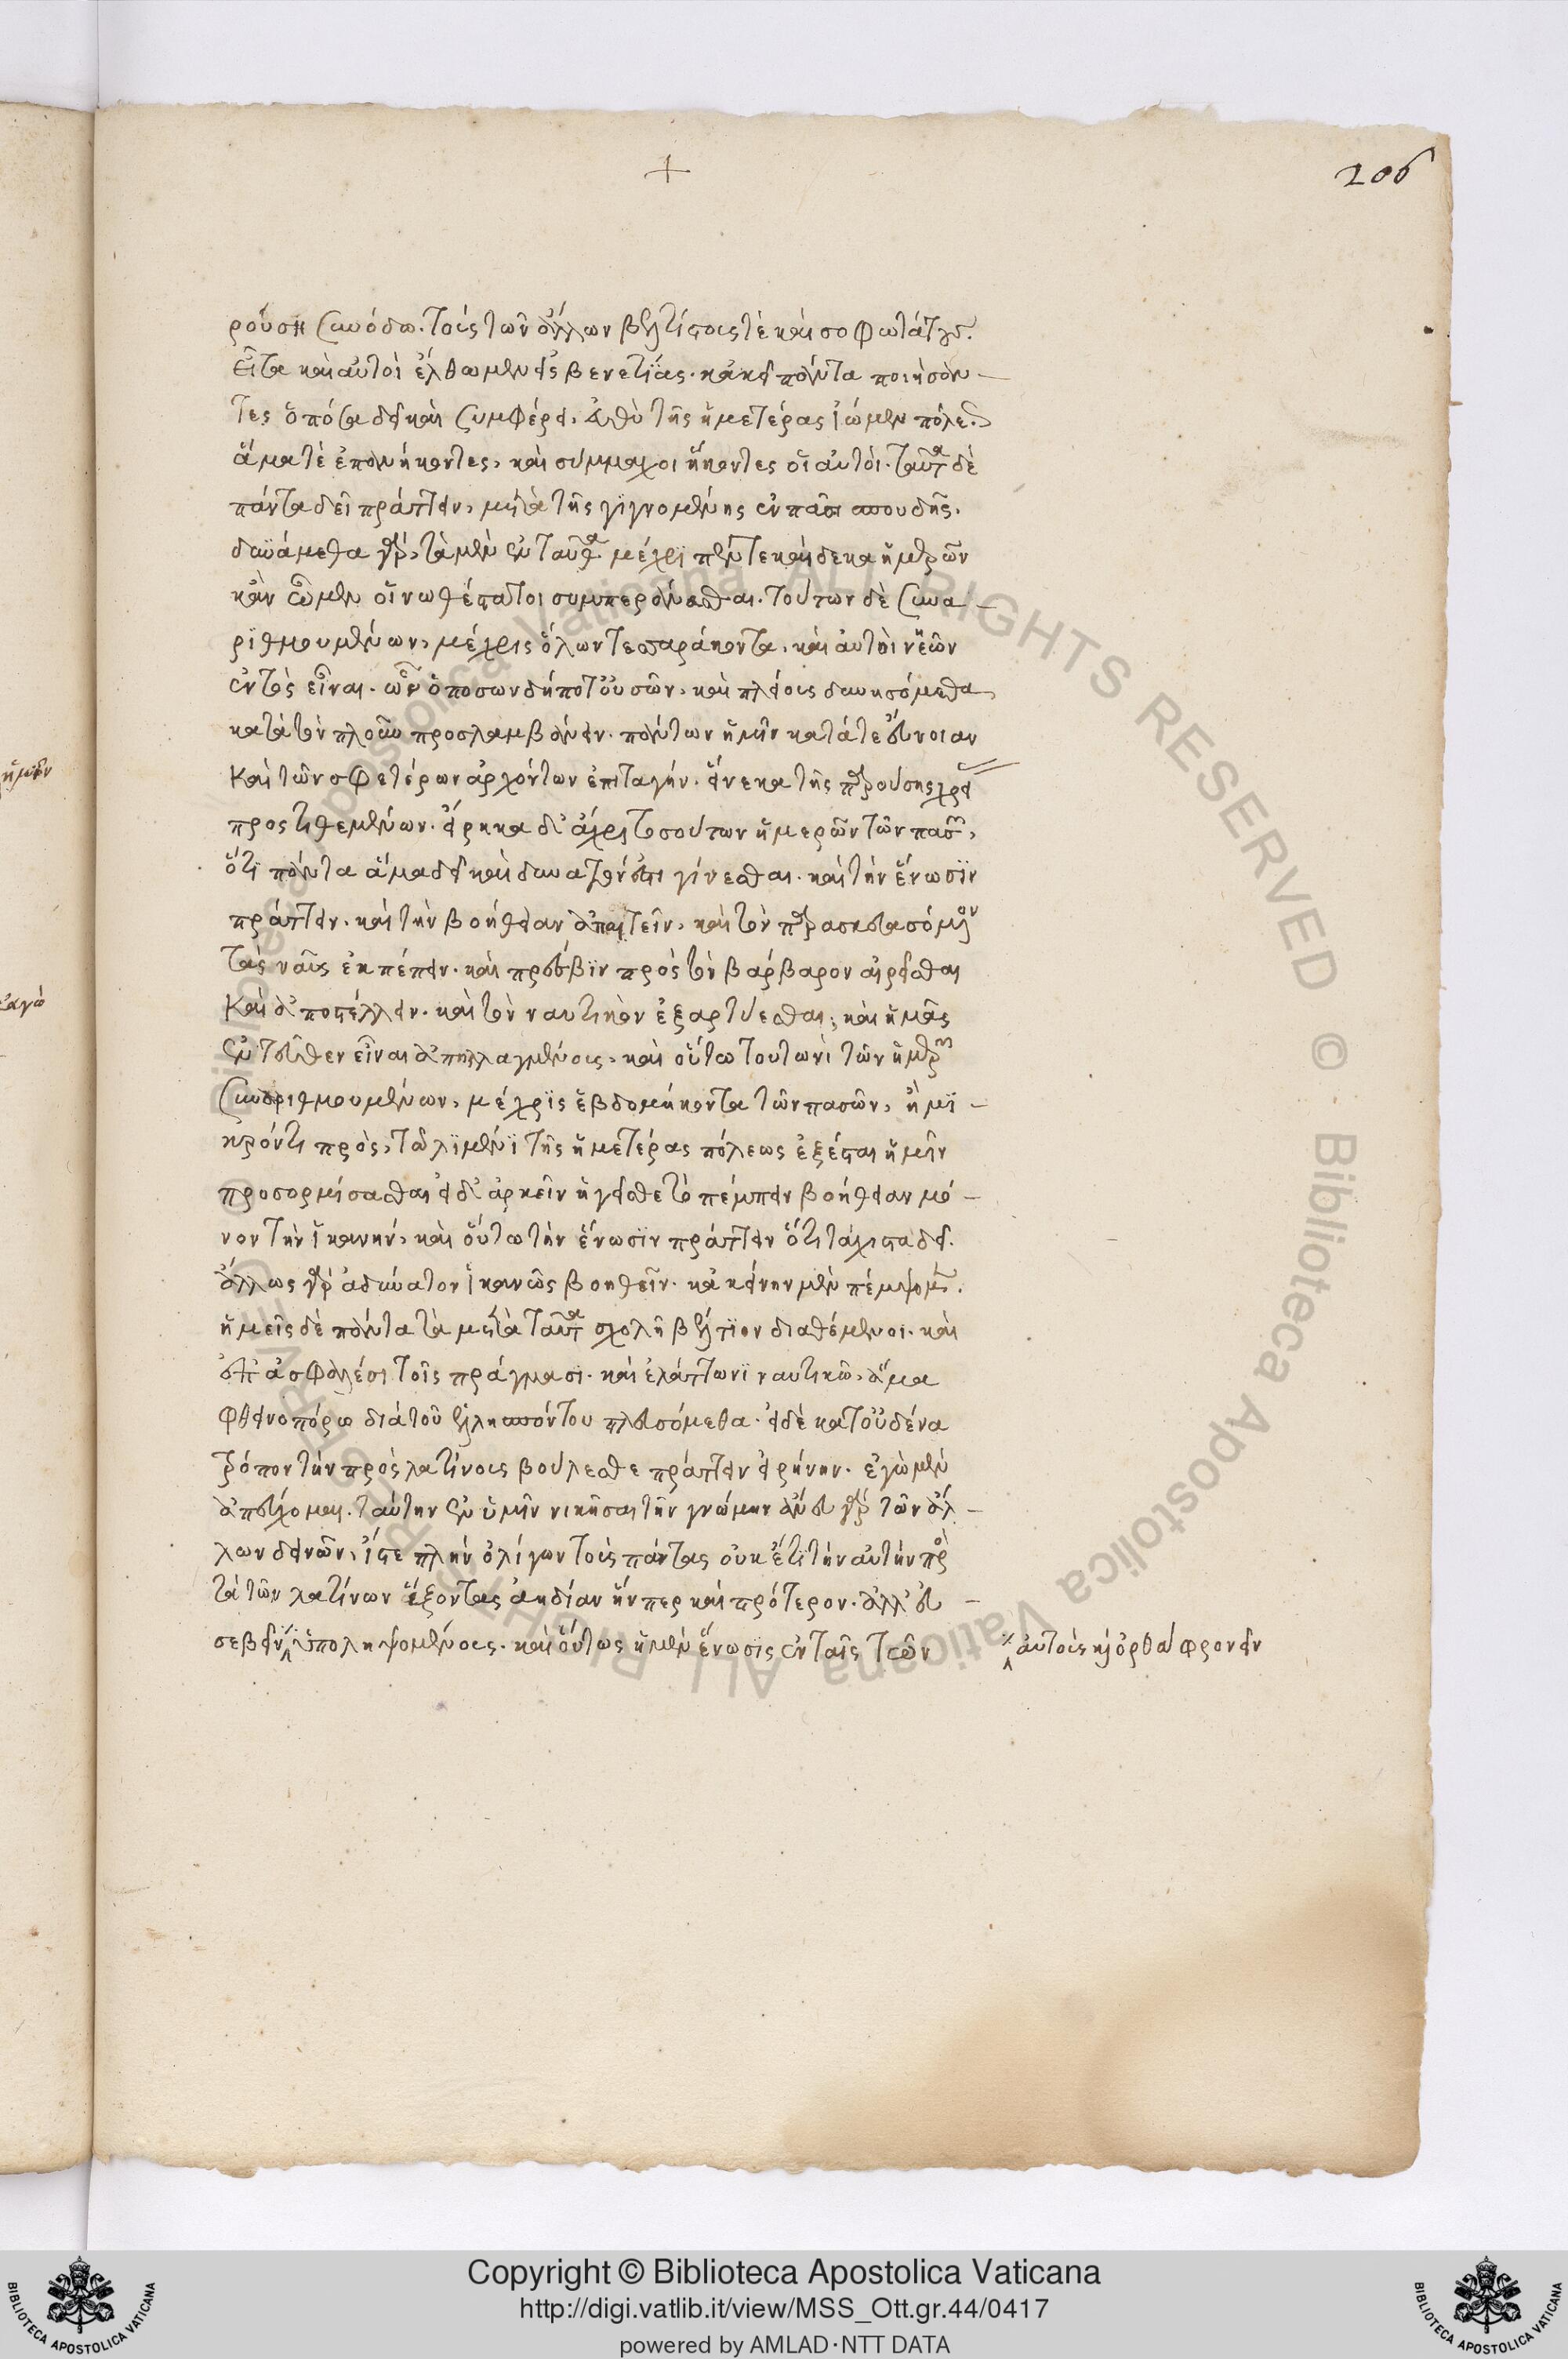 +
206
ρούσῃ συνόδῳ. τοῖς τῶν ἄλλων βελτίστοις τὲ καὶ σοφωτάτοις.
εἶτα καὶ αὐτοὶ ἔλθωμεν εἰς βενετίας. κἀκεῖ πάντα ποιήσαν-
τες ὁπόσα δεῖ καὶ συμφέρει, εὐθὺ τῆς ἡμετέρας ἴωμεν πόλεως
ἅμα τὲ ἐπανήκοντες, καὶ σύμμαχοι ἥκοντες οἱ αὐτοί. ταῦτα δὲ
πάντα δεῖ πράττειν, μετὰ τῆς γιγνομένης ἐν πᾶσι σπουδῆς.
δυνάμεθα γὰρ, τὰ μὲν ἐνταῦθα μέχρι πεντεκαίδεκα ἡμερῶν
κἂν ὦμεν οἱ νωθέστατοι συμπεράνασθαι. τούτων δὲ συνα-
ριθμουμένων, μέχρις ὅλων τεσσαράκοντα, καὶ αὐτοὶ νεῶν
ἐντὸς εἶναι. ὧν ὁποσωνδήποτ' οὐσῶν, καὶ πλείους δυνησόμεθα
κατὰ τὸν πλοῦν προσλαμβάνειν. πάντων ἡμῖν κατά τε εὔνοιαν
καὶ τῶν σφετέρων ἀρχόντων ἐπιταγήν. ἕνεκα τῆς παρούσης χρεί
προστιθεμένων. εἴρηκα δ' ἄχρι τοσούτων ἡμερῶν τῶν πασῶν,
ὅτι πάντα ἅμα δεῖ καὶ δυνατόν ἐστι γίνεσθαι. καὶ τὴν ἕνωσιν
πράττειν. καὶ τὴν βοήθειαν ἀπαιτεῖν, καὶ τὸν παρασκευασόμενον
τὰς ναῦς ἐκπέπειν. καὶ πρέσβιν πρὸς τὸν βάρβαρον αἱρεῖσθαι
καὶ ἀποστέλλειν. καὶ τὸν ναυτικὸν ἐξαρτύεσθαι, καὶ ἡμᾶς
ἐντεῦθεν εἶναι ἀπηλλαγμένους. καὶ οὕτω τουτωνὶ τῶν ἡμερῶν
συναριθμουμένων, μέχρις ἑβδομήκοντα τῶν πασῶν, ἢ μι-
κρόν τι πρὸς, τῷ λιμένι τῆς ἡμετέρας πόλεως ἐξέσται ἡμῖν
προσορμίσασθαι εἰ δ' ἀρκεῖν ἡγεῖσθε τὸ πέμπειν βοήθειαν μό-
νον τὴν ἱκανήν, καὶ οὕτω τὴν ἕνωσιν πράττειν ὅτι τάχιστα δεῖ.
ἄλλως γὰρ ἀδύνατον ἱκανῶς βοηθεῖν. κἀκείνην μὲν πέμψομεν.
ἡμεῖς δὲ πάντα τὰ μετὰ ταῦτα σχολῇ βέλτιον διαθέμενοι. καὶ
ἐπ' ἀσφαλέσι τοῖς πράγμασι. καὶ ἐλάττωνι ναυτικῷ, ἅμα
φθεινοπόρῳ διὰ τοῦ ἑλλησπόντου πλευσόμεθα. εἰ δὲ κατ' οὐδένα
τρόπον τὴν πρὸς λατίνους βούλεσθε πράττειν εἰρήνην. ἐγὼ μὲν
ἀπεύχομαι. ταύτην ἐν ὑμῖν νικῆσαι τὴν γνώμην ἄνευ γὰρ τῶν ἄλ-
λων δεινῶν, ἴστε πλὴν ὀλίγων τοὺς πάντας οὐκέτι τὴν αὐτὴν πρὸς
τὰ τῶν λατίνων ἕξοντας ἀηδίαν ἥνπερ καὶ πρότερον. ἀλλ' εὐ-
σεβεῖν ὑποληψομένους. καὶ ὄντως ἡ μὲν ἕνωσις ἐν ταῖς τῶν
αὐτοὺς κὶ ὀρθὰ φρονεῖν
Copyright © Biblioteca Apostolica Vaticana
http://digi.vatlib.it/view/MSS_Ott.gr.44/0417
powered by AMLAD·NTT DATA